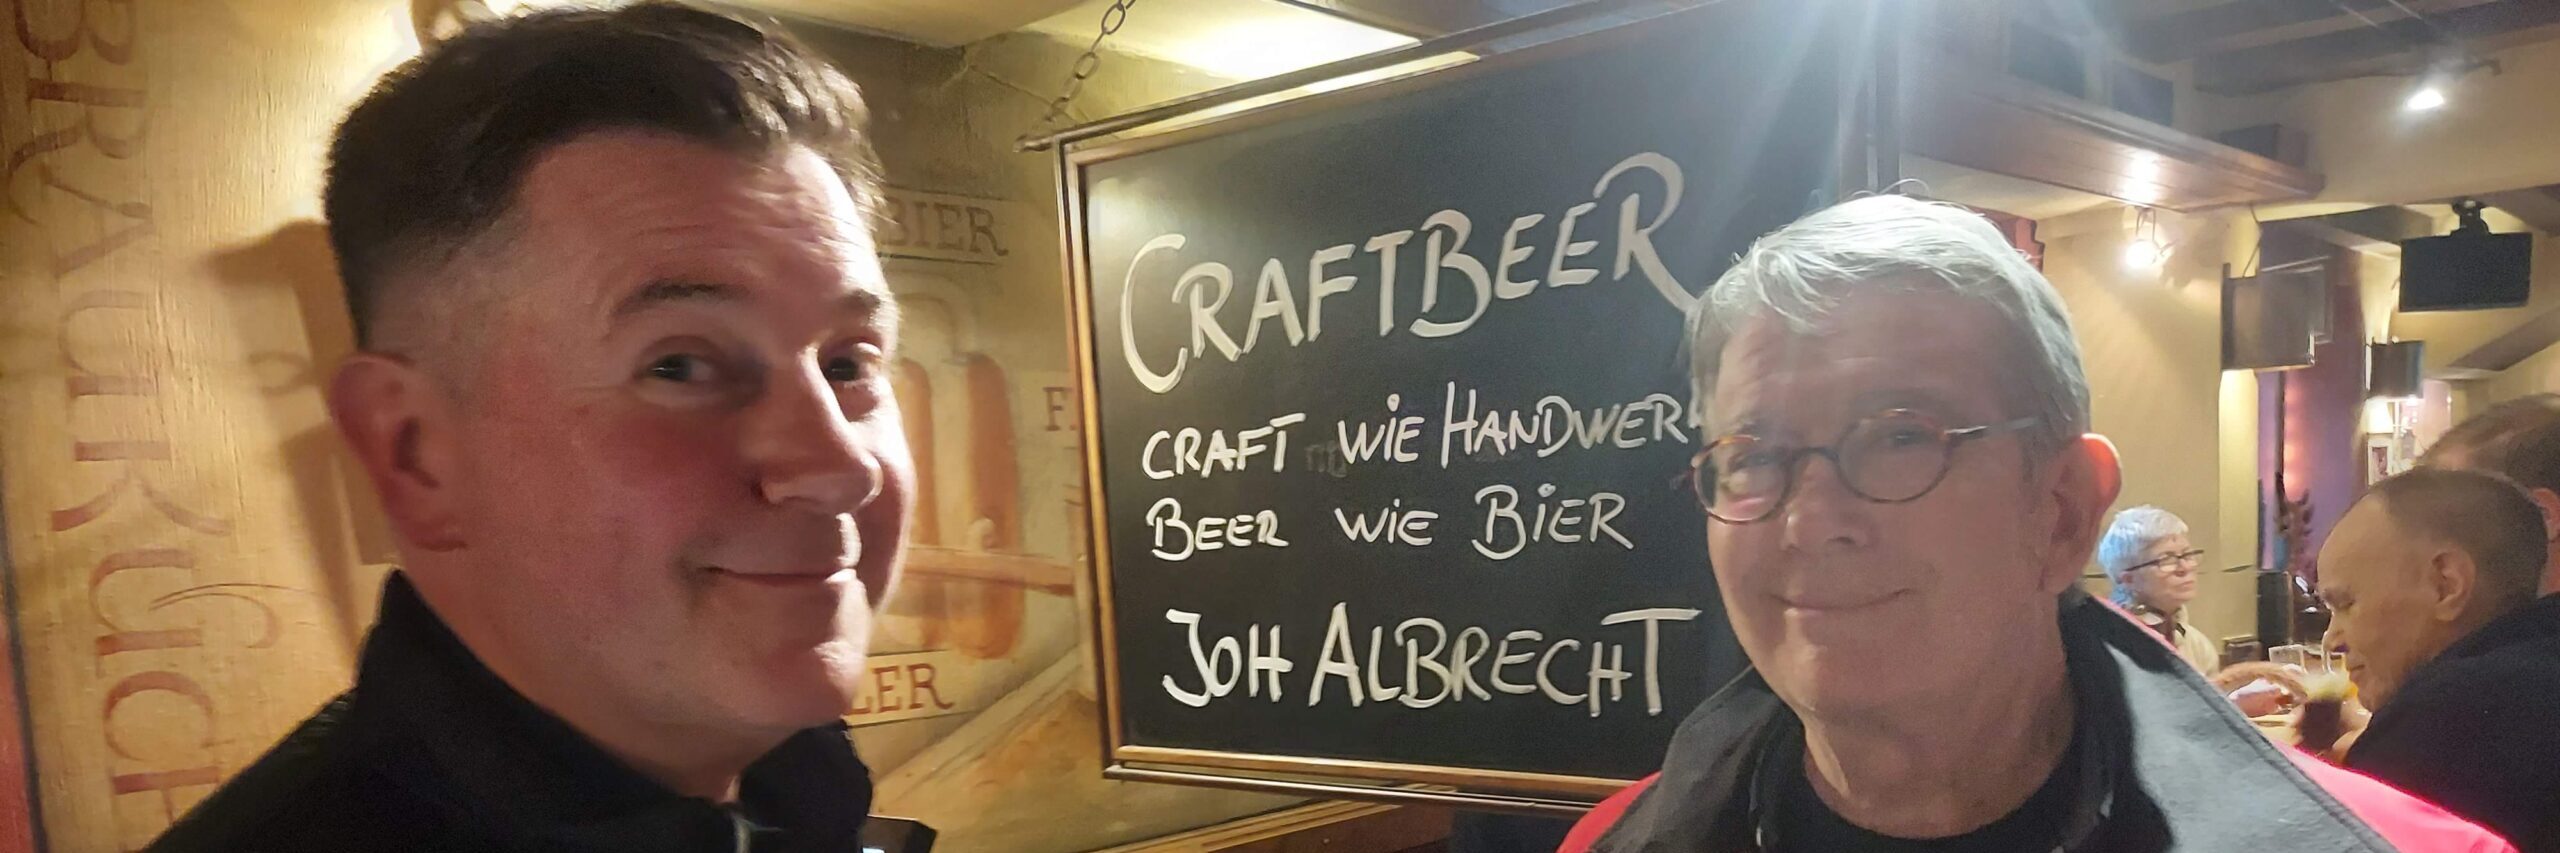 BRAUKUCH
BIER
LER
CRAFTBEER
CRAFT WIE HANDWERK
BEER WIE BIER
JOH ALBRECHT